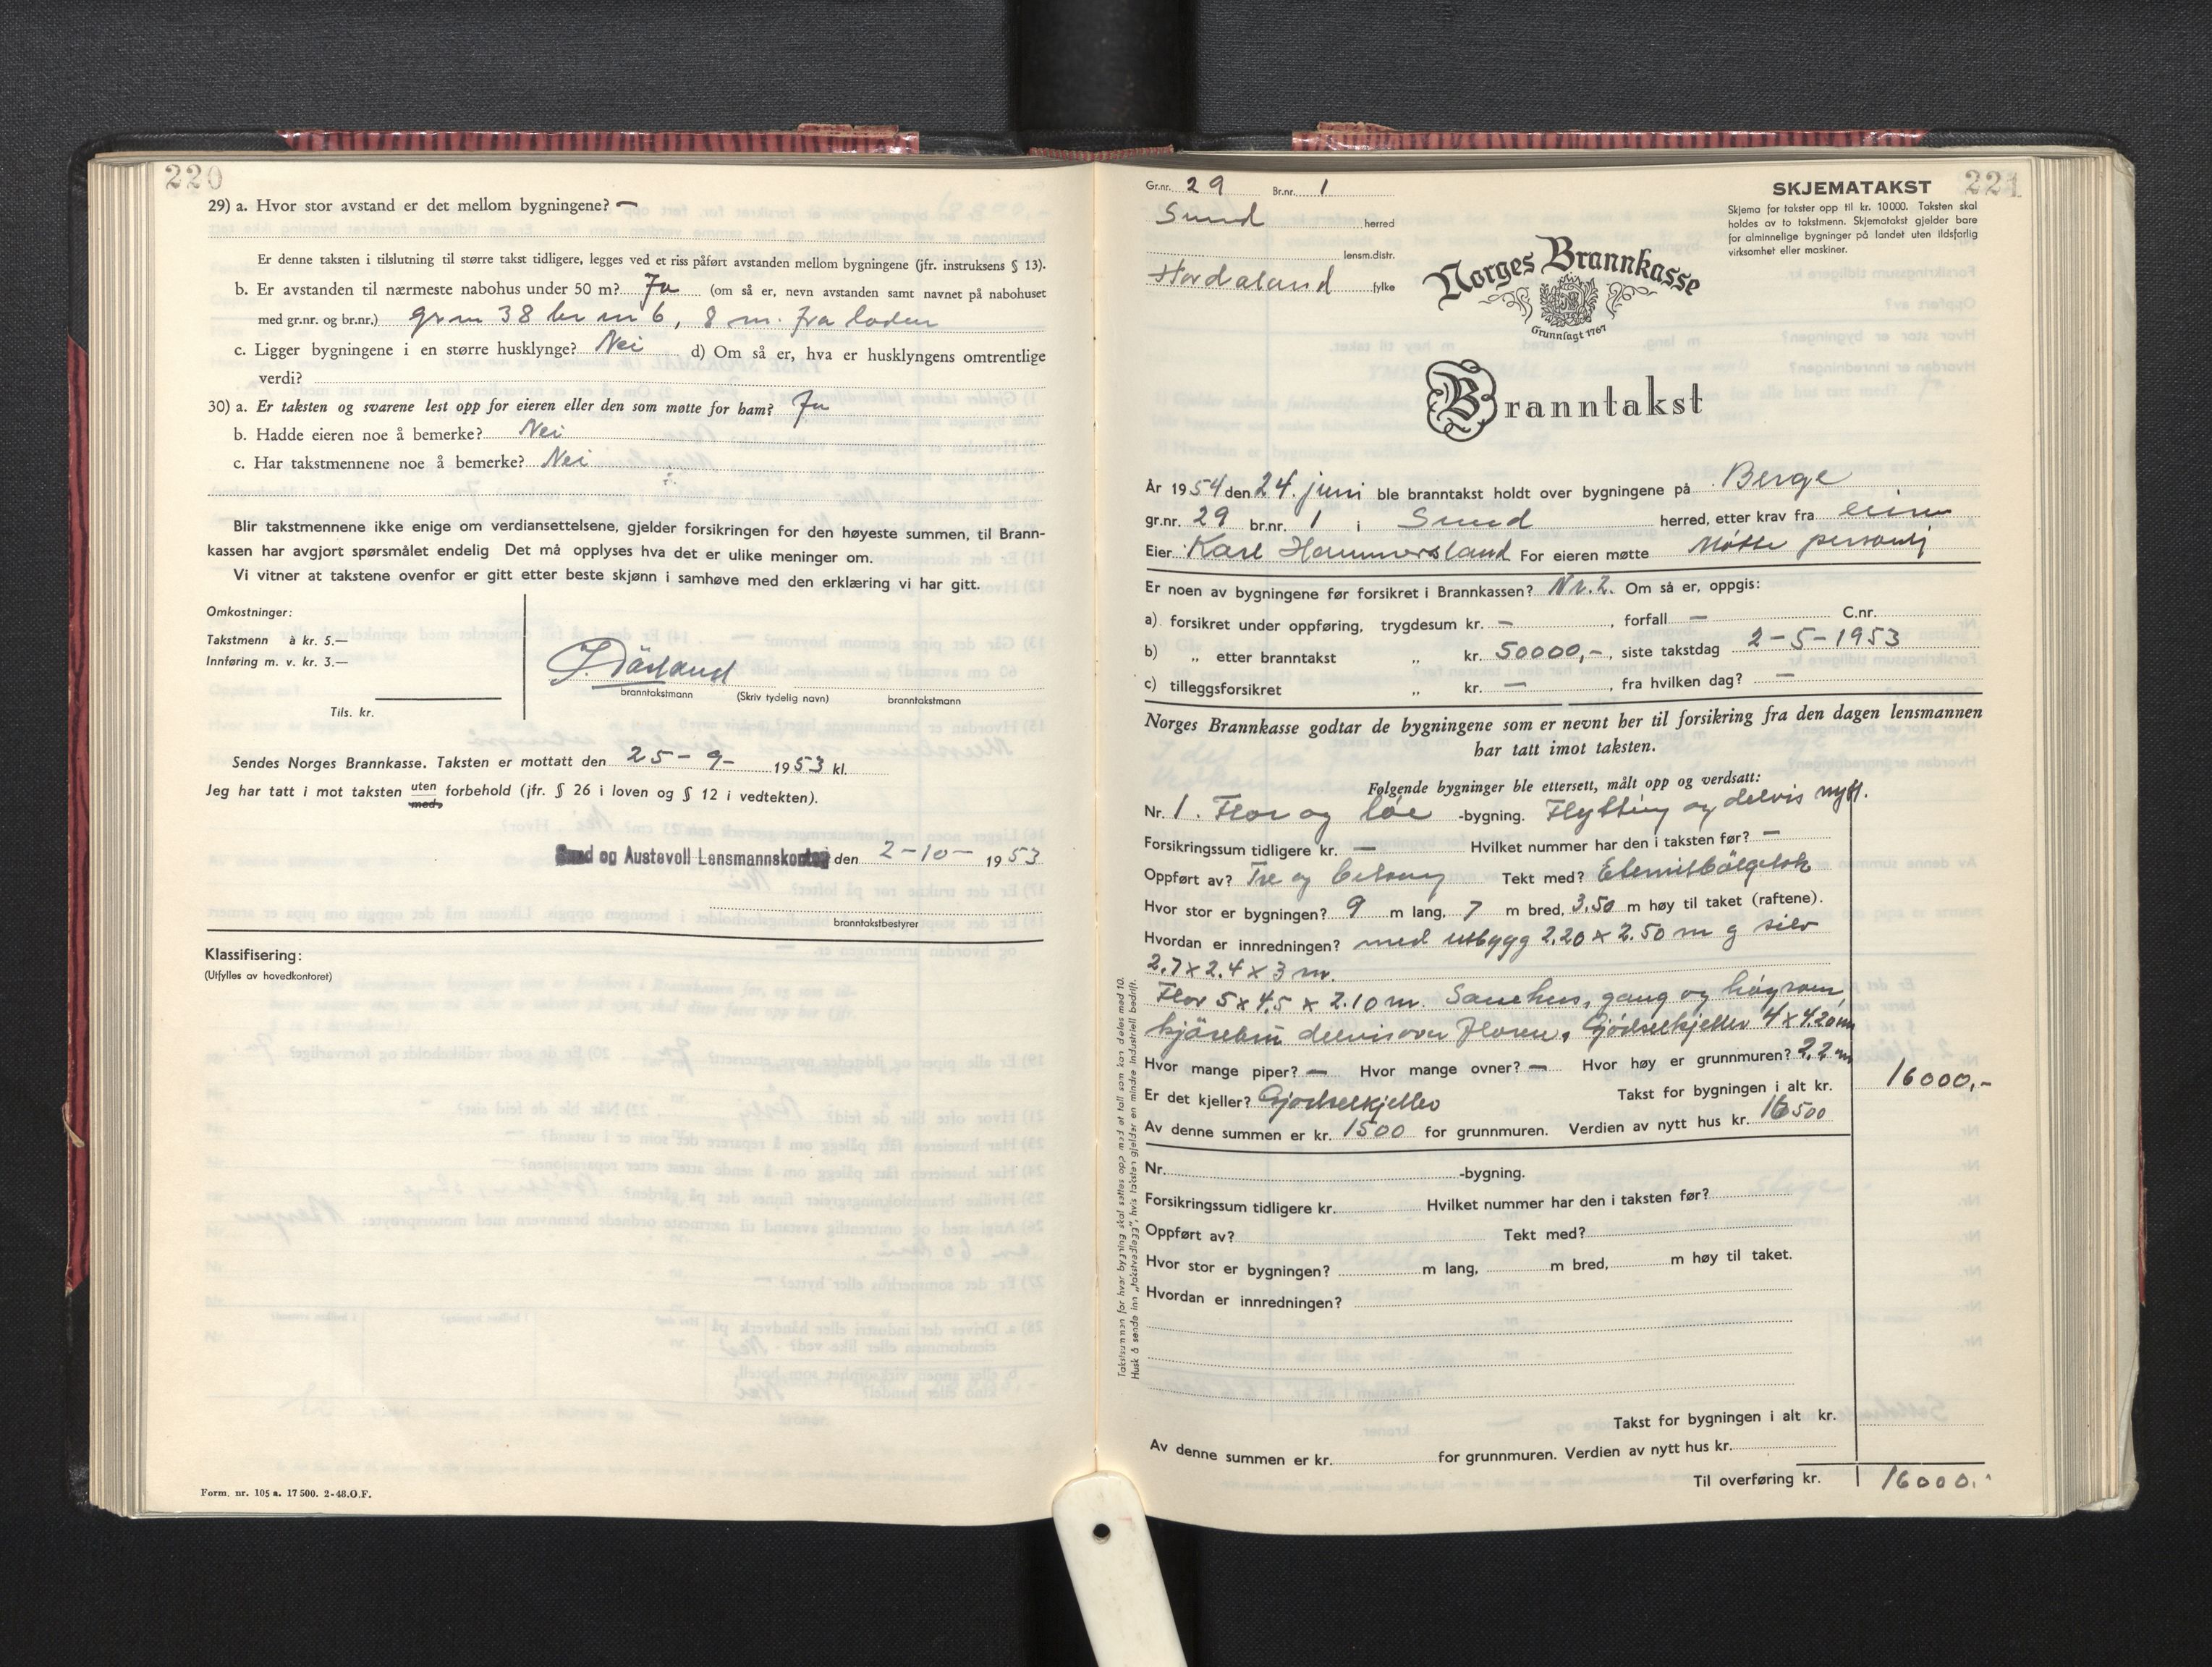 220
29) a. Hvor stor avstand er det mellom bygningene? —
Er denne taksten i tilslutning til større takst tidligere, legges ved et riss påført avstanden mellom bygningene (jfr. instruksens § 13).
b. Er avstanden til nærmeste nabohus under 50 m? Ja (om så er, nevn avstanden samt navnet på nabohuset
med gr.nr. og br.nr.) gr nr 38 br nr 6, 8 m. fra löden
c. Ligger bygningene i en større husklynge? Nei d) Om så er, hva er husklyngens omtrentlige
verdi?
30) a. Er taksten og svarene lest opp for eieren eller den som møtte for ham? Ja
b. Hadde eieren noe å bemerke? Nei
c. Har takstmennene noe å bemerke? Nei
Blir takstmennene ikke enige om verdiansettelsene, gjelder forsikringen for den høyeste summen, til Brann-
kassen har avgjort spørsmålet endelig Det må opplyses hva det er ulike meninger om.
Vi vitner at takstene ovenfor er gitt etter beste skjønn i samhøve med den erklæring vi har gitt.
Omkostninger:
Takstmenn à kr. 5.—
Innføring m. v. kr. 3.—
Tils. kr.
branntakstmann (Skriv tydelig navn) branntakstmann
Sendes Norges Brannkasse. Taksten er mottatt den 25-9- 1953 kl.
Jeg har tatt i mot taksten uten med forbehold (jfr. § 26 i loven og § 12 i vedtekten).
Sund og Austevoll Lensmannskontor den 2-10- 1953
branntakstbestyrer
Klassifisering:
(Utfylles av hovedkontoret)
Form. nr. 105 a. 17 500. 2-48.O.F.
Gr.nr. 29 Br.nr. 1
Sund herred
lensm.distr.
Hordaland fylke
SKJEMATAKST 221
Skjema for takster opp til kr. 10000. Taksten skal
holdes av to takstmenn. Skjematakst gjelder bare
for alminnelige bygninger på landet uten ildsfarlig
virksomhet eller maskiner.
Norges Brannkasse
Grunnlagt 1767
Branntakst
År 1954 den 24. juni ble branntakst holdt over bygningene på Berge
gr.nr. 29 br.nr. 1 i Sund herred, etter krav fra eieren
Eier Karl Hammersland For eieren møtte Møtte personlig
Er noen av bygningene før forsikret i Brannkassen? Nr. 2. Om så er, oppgis:
a) forsikret under oppføring, trygdesum kr. —, forfall — C.nr.
b) „ etter branntakst „ kr. 50000,-, siste takstdag 2-5-1953
c) tilleggsforsikret „ kr. —, fra hvilken dag? —
Norges Brannkasse godtar de bygningene som er nevnt her til forsikring fra den dagen lensmannen
har tatt imot taksten.
Følgende bygninger ble ettersett, målt opp og verdsatt:
Nr. 1. Flor og löe -bygning. Flytting og delvis nytt.
Forsikringssum tidligere kr. — Hvilket nummer har den i taksten før? —
Oppført av? Tre og betong Tekt med? Eternitbölgetak
Hvor stor er bygningen? 9 m lang, 7 m bred, 3,50 m høy til taket (raftene).
Hvordan er innredningen? med utbygg 2.20 x 2.50 m og silo
2.7 x 2.4 x 3 m.
Flor 5 x 4,5 x 2.10 m. Sauehus, gang og höyrom,
kjörebru delvis over Floren, Gjödselkjeller 4 x 4.20 m
Hvor mange piper? — Hvor mange ovner? — Hvor høy er grunnmuren? 2,2 m
Er det kjeller? Gjödselkjeller Takst for bygningen i alt kr. 16000,-
Av denne summen er kr. 1500 for grunnmuren. Verdien av nytt hus kr. 16500
Nr. -bygning.
Forsikringssum tidligere kr. Hvilket nummer har den i taksten før?
Oppført av? Tekt med?
Hvor stor er bygningen? m lang, m bred, m høy til taket.
Hvordan er innredningen?
Takst for bygningen i alt kr.
Av denne summen er kr. for grunnmuren. Verdien av nytt hus kr.
Til overføring kr. 16000.-
Takstsummen for hver bygning skal settes opp med et tall som kan deles med 10.
Husk å sende inn "takstvedlegg", hvis taksten gjelder en mindre industriell bedrift.